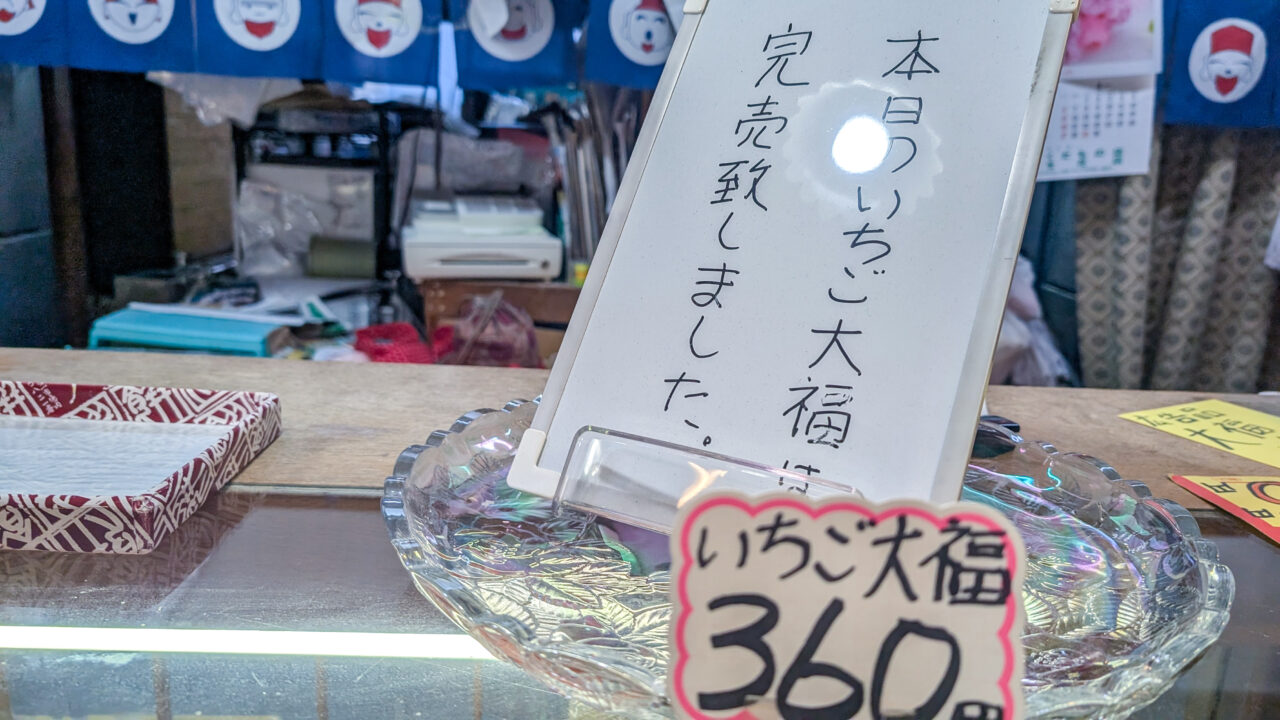 本日のいちご大福は
完売致しました。
いちご大福
360円